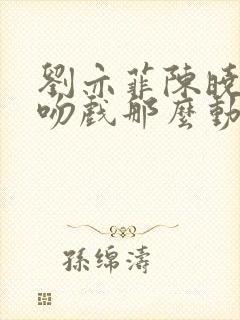 劉亦菲陳曉
吻戲那麼動
孫绵濤